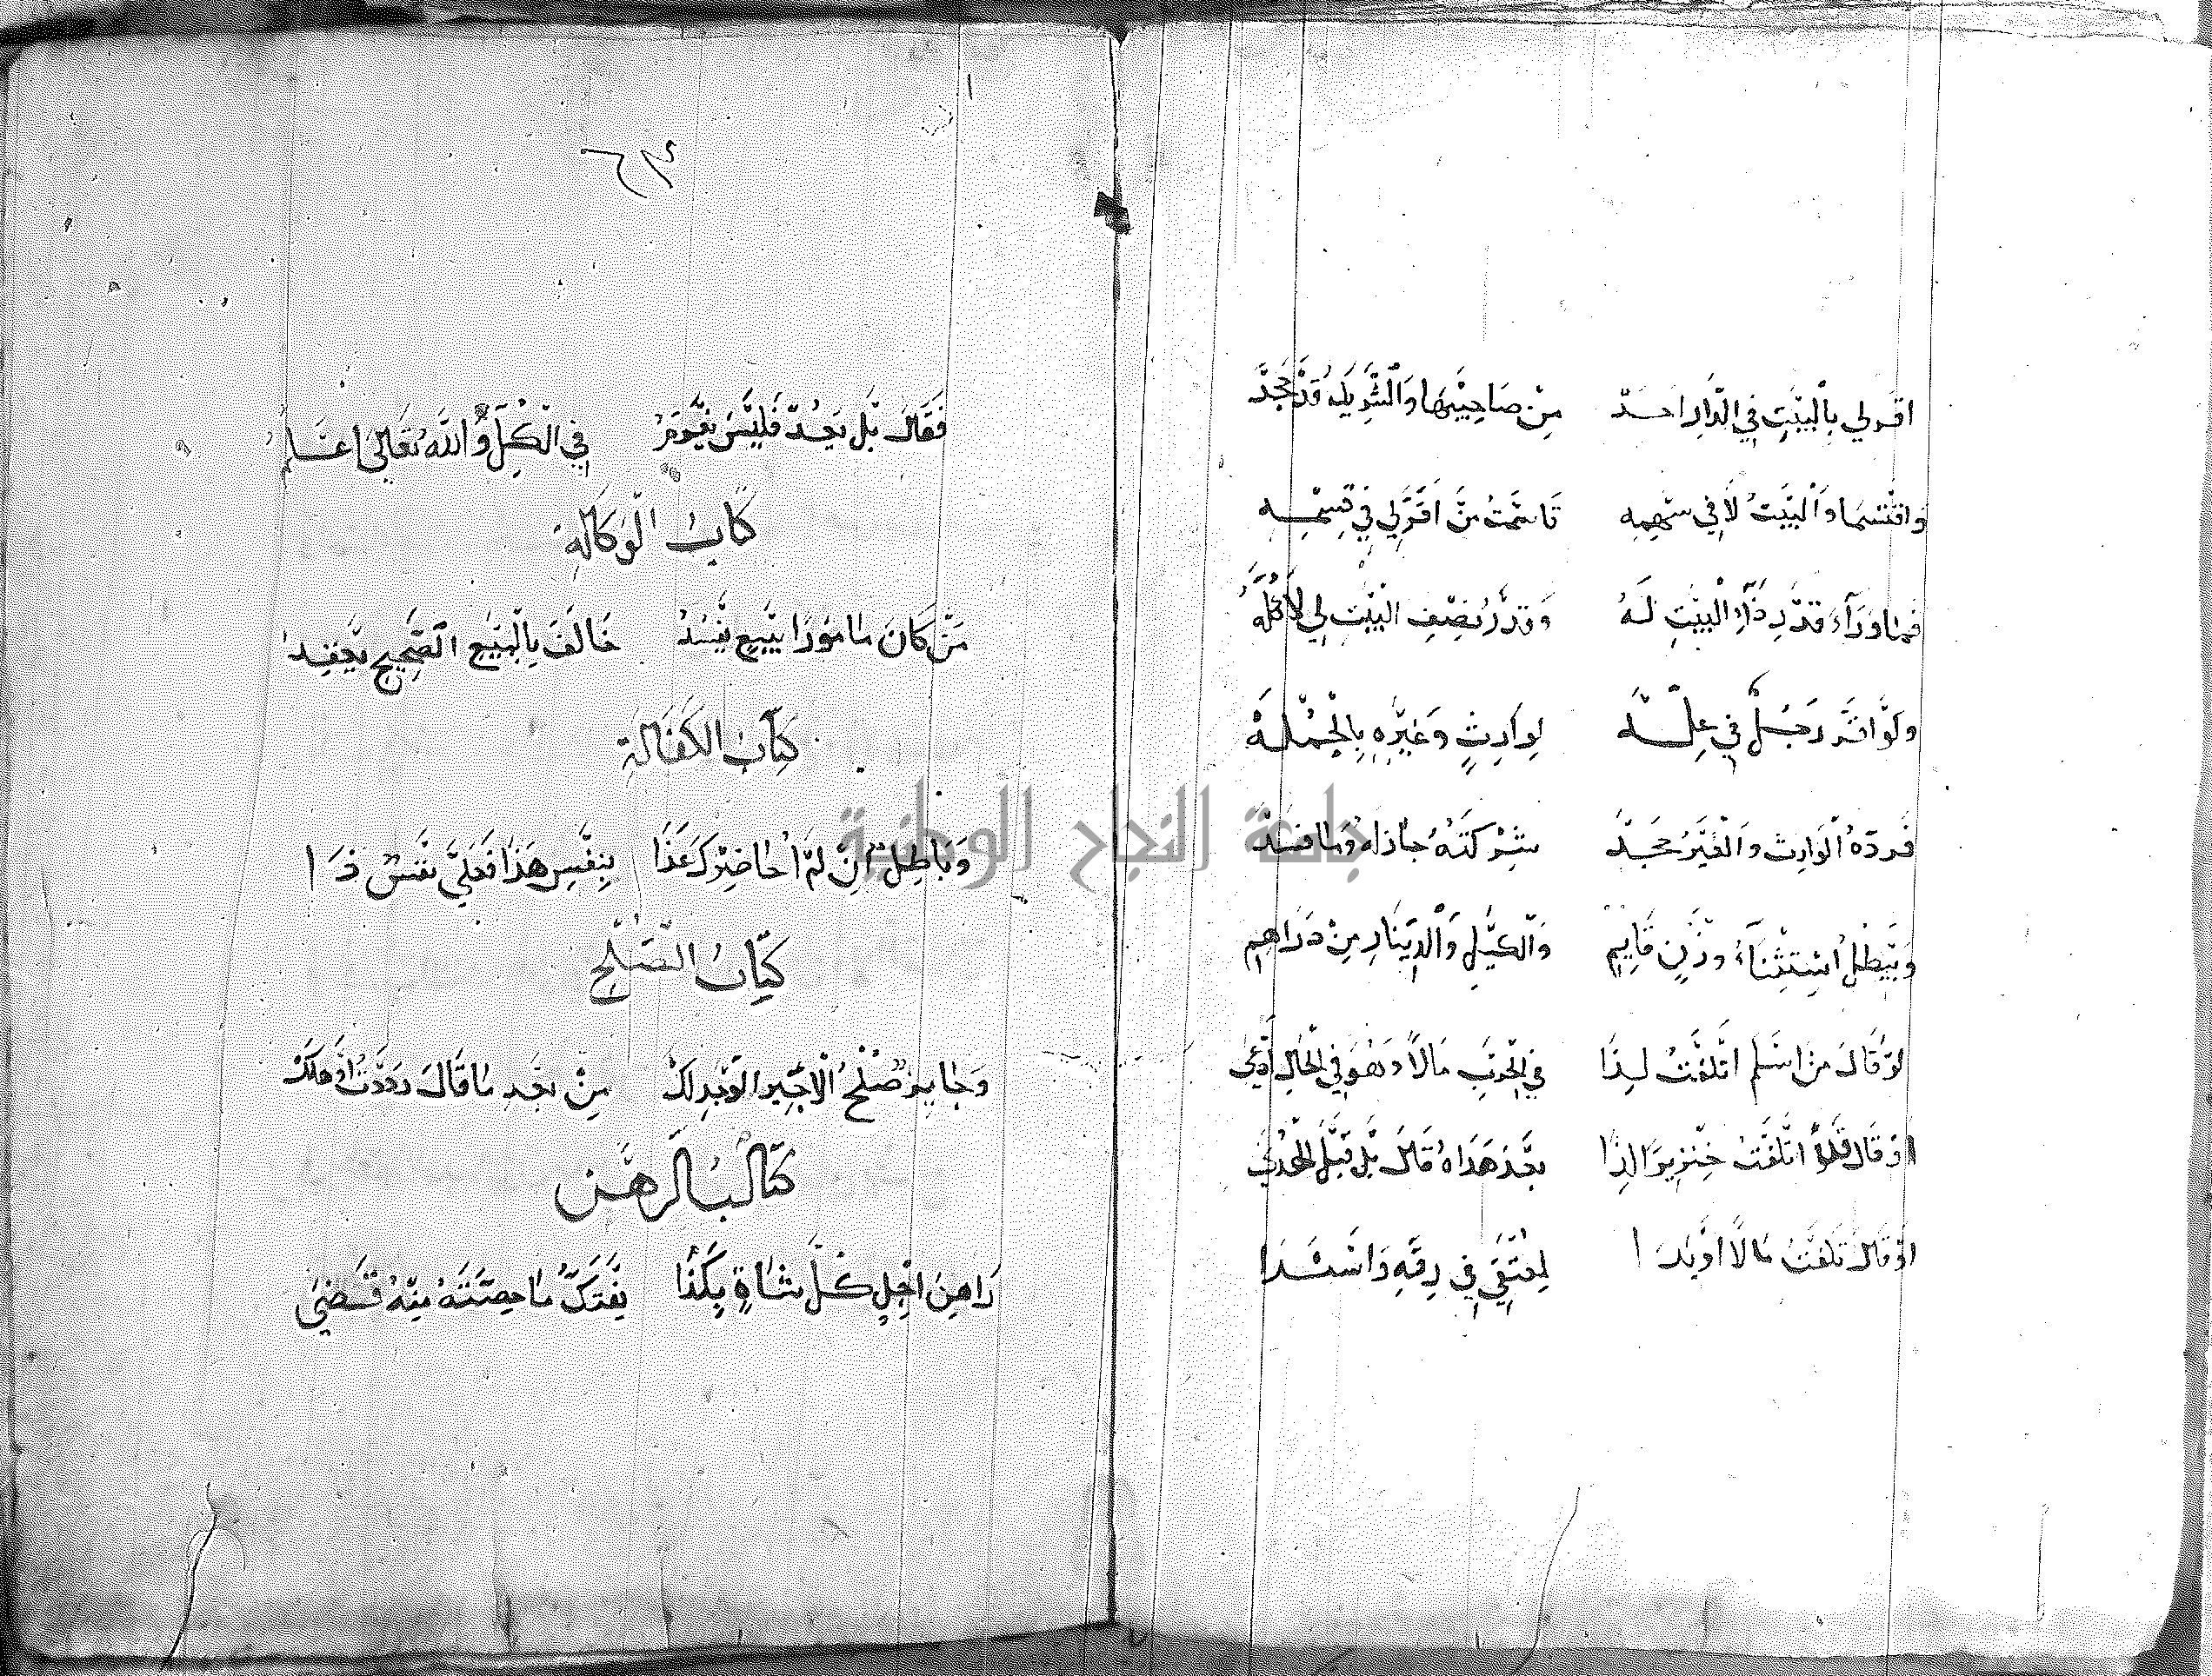 اقر لي بالبَيْتِ في الدَّارِ احَدْ مِنْ صَاحِبَيْهَا وَالشَّرِيكُ قَدْ جَحَدْ
واقتَسَمَا وَالبَيْتُ لَا في سَهْمِهِ قَاسَمْتُ مَنْ اَقَرَّ لِي فِي قِسْمِهِ
فمَا وَرَآءَ قدْرِ ذَاكَ الْبَيْتِ لَهُ وَقدرُ نِصْفِ البَيْتِ لِي لَا كُلُّهُ
ولَوْ اقَرَّ رَجُلٌ في عِلَّهْ لِوَارِثٍ وَغَيْرِهِ بِالْجُمْلَهْ
فَردَّهُ الْوَارِث وَالْغَيْرُ جَحَدْ شِرْكَتَهُ جَازَ لهُ وَمَا فَسَدْ
وَيَبْطُلُ اسْتِثْنَاءُ وَزْنِ قَايِمِ وَالكَيْلِ وَالدِّينَارِ مِنْ دَرَاهِمِ
لَوْ قَالَ مَنْ اسْلَمَ اتْلَفْتُ لِذَا في الْحَرْبِ مَالاً وَهْوَ في الحَالِ ادَّعَى
اوْ قَالَ اتْلَفْتُ خِنْزِيرًا لِذَا بَعْدَ هَدَاهُ قَالَ بَلْ قَبْلَ
اوْ قَالَ تَلَفْتُ مَالاً اوْ يَدَا لِمُعْتَقِي فِي رِقِّهِ
جامعة النجاح الوطنية
فَقَالَ بَلْ بَعْدُ فَلَيْسَ يَغْرَمُ فِي الْكُلِّ وَاللَّهُ تَعَالَى اعْلَمُ
كتَابُ الْوَكَالَة
مَنْ كَانَ مَامُورًا بِبَيْعٍ يَفْسُدُ خَالَفَ بِالْبَيْعِ الصَّحِيحِ يُعْقَدُ
كِتَابُ الكَفَالَةِ
وَبَاطِلٌ اِنْ لَمْ اُحَاضِرْكَ غَدَا بِنَفْسِ هَذَا فَعَلَيَّ نَفْسُ ذَا
كِتَابُ الصُّلْحِ
وَجَايِزٌ صُلْحُ الْاَجِيرِ مِنْ بَعْدِ مَا قَالَ رَدَدْتُ اَوْ هَلَكْ
كتَابُ الرَهْن
رَاهِنُ اجْلِ كُلَّ شَاةٍ بِكَذَا يَفْتَكُّ مَا حِصَّتَهُ مِنْهُ قَضَى